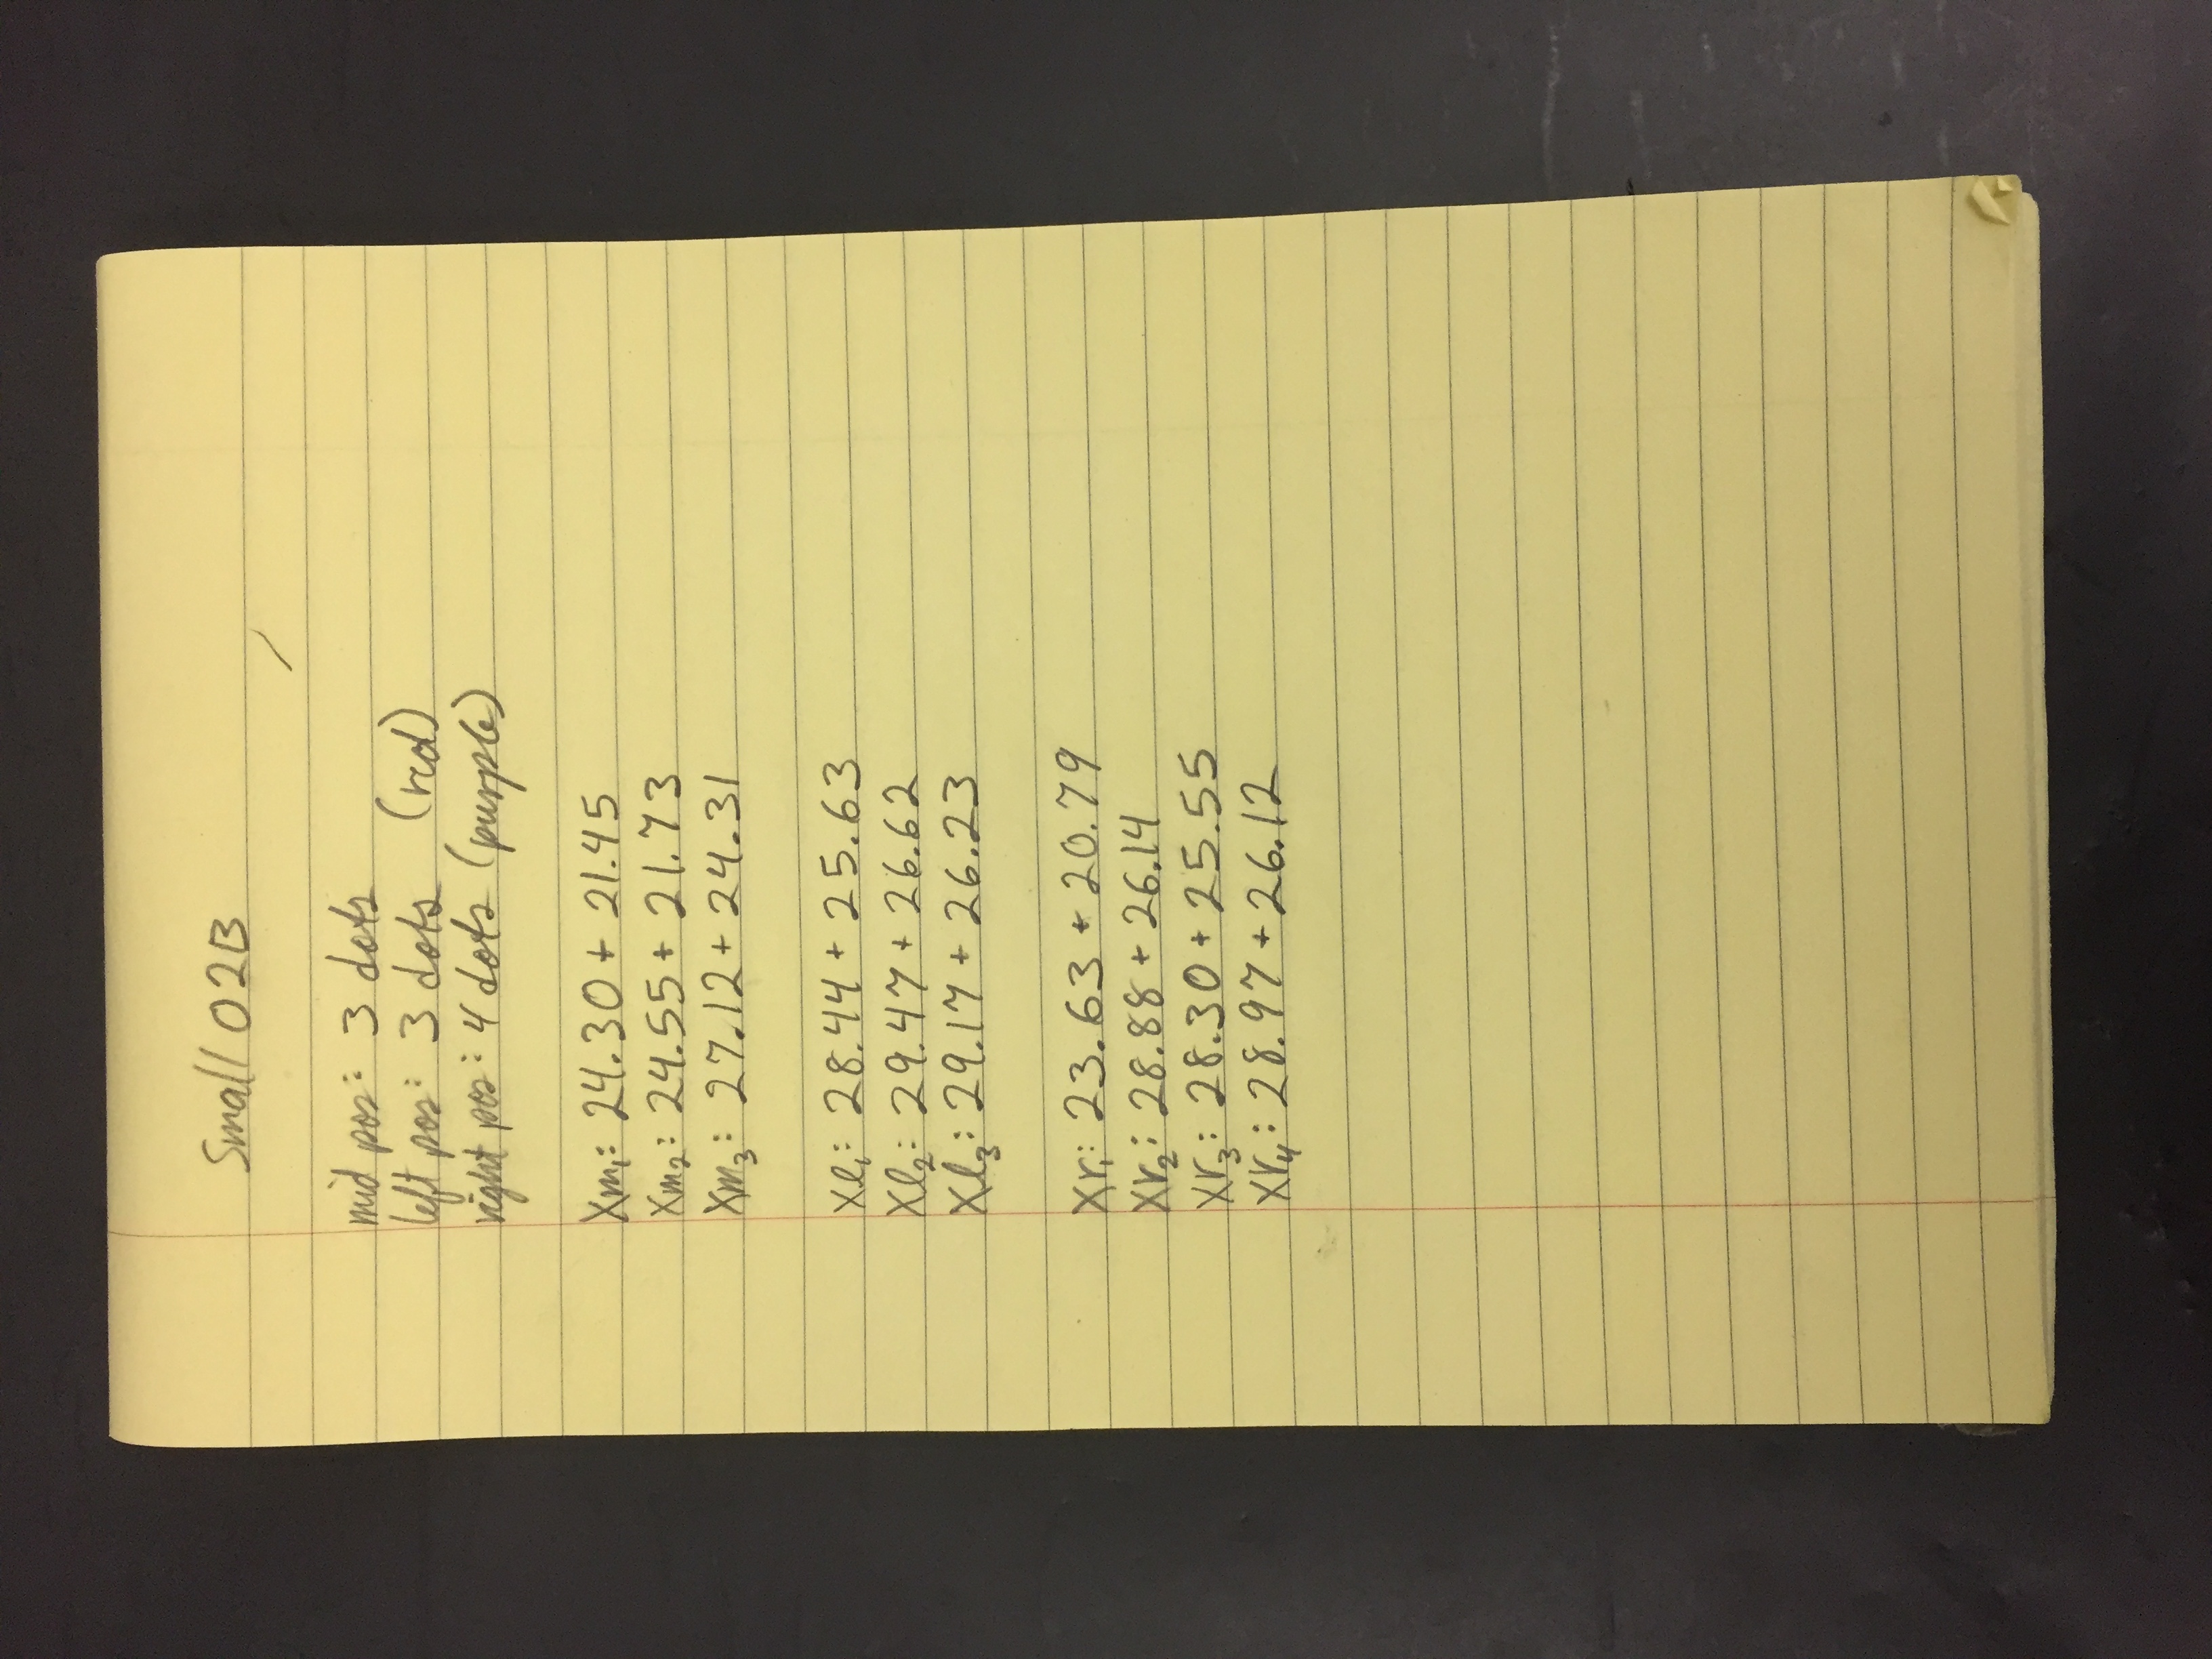 Small 02B
mid pos: 3 dots
left pos: 3 dots (red)
right pos: 4 dots (purple)
Xm₁: 24.30 + 21.45
Xm₂: 24.55 + 21.73
Xm₃: 27.12 + 24.31
Xl₁: 28.44 + 25.63
Xl₂: 29.47 + 26.62
Xl₃: 29.17 + 26.23
Xr₁: 23.63 + 20.79
Xr₂: 28.88 + 26.14
Xr₃: 28.30 + 25.55
Xr₄: 28.97 + 26.12